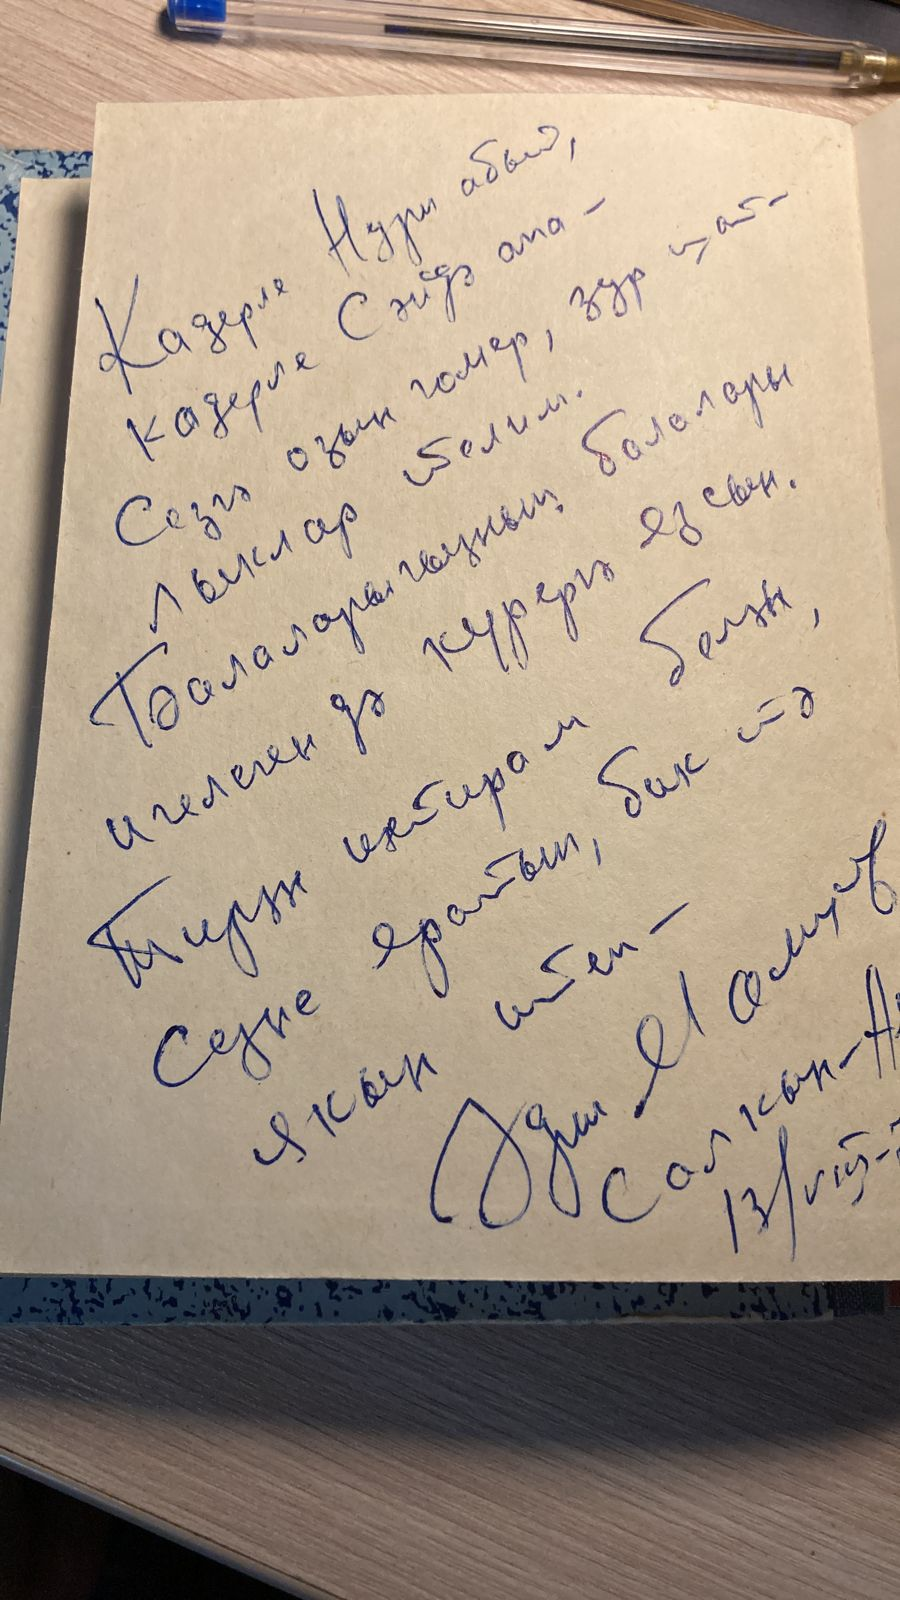 Кадерле Нури абый,
кадерле Сәйдә апа –
Сезгә озын гомер, зур шат-
лыклар телим.
Балаларыгызның балалары
игелеген дә күрергә язсын.
Тирән ихтирам белән,
Сезне яратып, бик тә
якын итеп –
Салкын-
13/VIII-